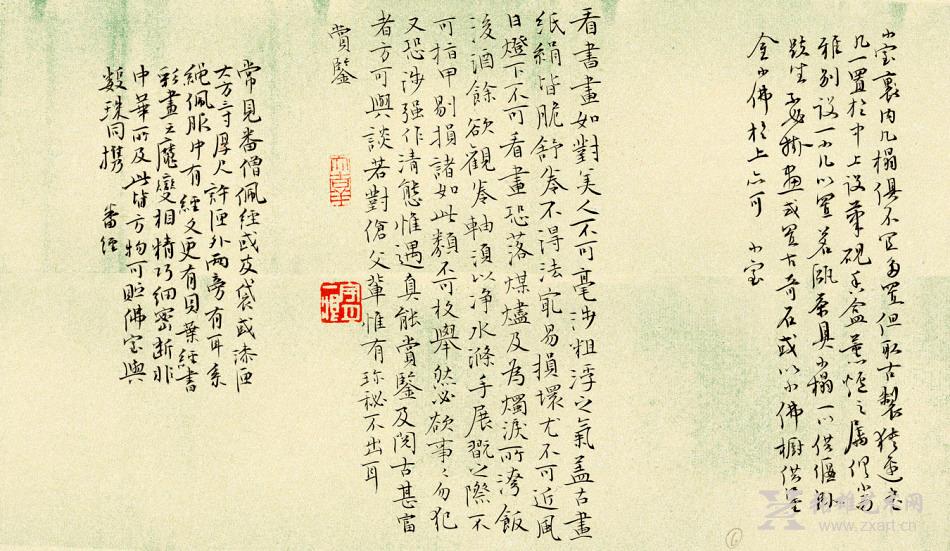 小室裏内几榻俱不宜多置但取古製狹邊書
几一置於中上设筆硯香盒薰炉之屬俱小而
雅别设一小几以置茗甌茶具小榻一以供偃卧
趺坐不必掛画或置古奇石或以小佛橱供鎏
金小佛於上亦可 小室
看書畫如對美人不可毫涉粗浮之氣盖古畫
紙絹皆脆舒卷不得法冣易損壞尤不可近風
日燈下不可看畫恐落煤燼及為燭淚所汚飯
後酒餘欲觀卷軸須以净水滌手展翫之際不
可指甲剔損諸如此類不可枚舉然必欲事〻勿犯
又恐涉强作清態惟遇真能賞鑒及閱古甚富
者方可與談若對傖父輩惟有珍秘不出耳
賞鑒
常見番僧佩經或皮袋或漆匣
大方三寸厚寸許匣外兩旁有耳系
繩佩服中有經文更有貝葉經書
彩畫天魔變相精巧細密斷非
中華所及此皆方物可貯佛室與
數珠同攜 番經
张雄艺术网
www.zxart.cn
6